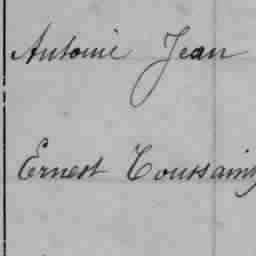 Antoine Jean
Ernest Toussaint